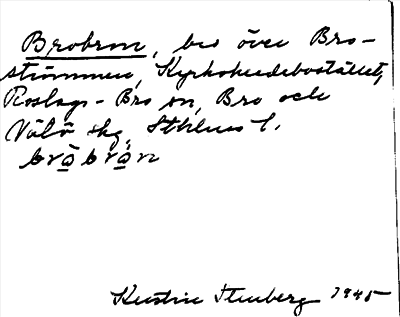 Brobron, bro över Bro-
strömmen, Kyrkoherdebostället,
Roslags-Bro sn, Bro och
Väddö skg, Sthlms l.
bråbrån
Kerstin Stenberg 1945